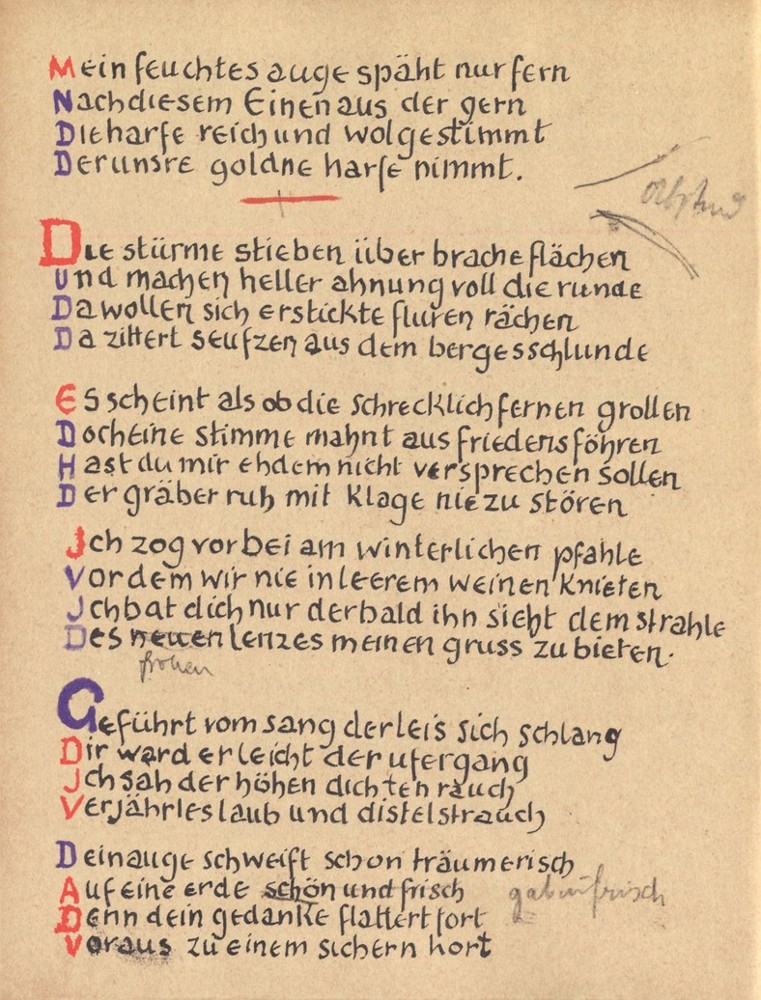 Mein feuchtes auge späht nur fern
Nach diesem Einen aus der gern
Die harfe reich und wolgestimmt
Der unsre goldne harfe nimmt.
Die stürme stieben über brache flächen
Und machen heller ahnung voll die runde
Da wollen sich erstickte fluren rächen
Da zittert seufzen aus dem bergesschlunde
Es scheint als ob die schrecklich fernen grollen
Doch eine stimme mahnt aus friedensföhren
Hast du mir ehdem nicht versprechen sollen
Der gräber ruh mit klage nie zu stören
Ich zog vorbei am winterlichen pfahle
Vor dem wir nie in leerem weinen knieten
Ich bat dich nur der bald ihn sieht dem strahle
Des neuen lenzes meinen gruss zu bieten.
frohen
Geführt vom sang der leis sich schlang
Dir ward er leicht der ufergang
Ich sah der höhen dichten rauch
Verjährtes laub und distelstrauch
Dein auge schweift schon träumerisch
Auf eine erde schön und frisch
Denn dein gedanke flattert fort
Voraus zu einem sichern hort